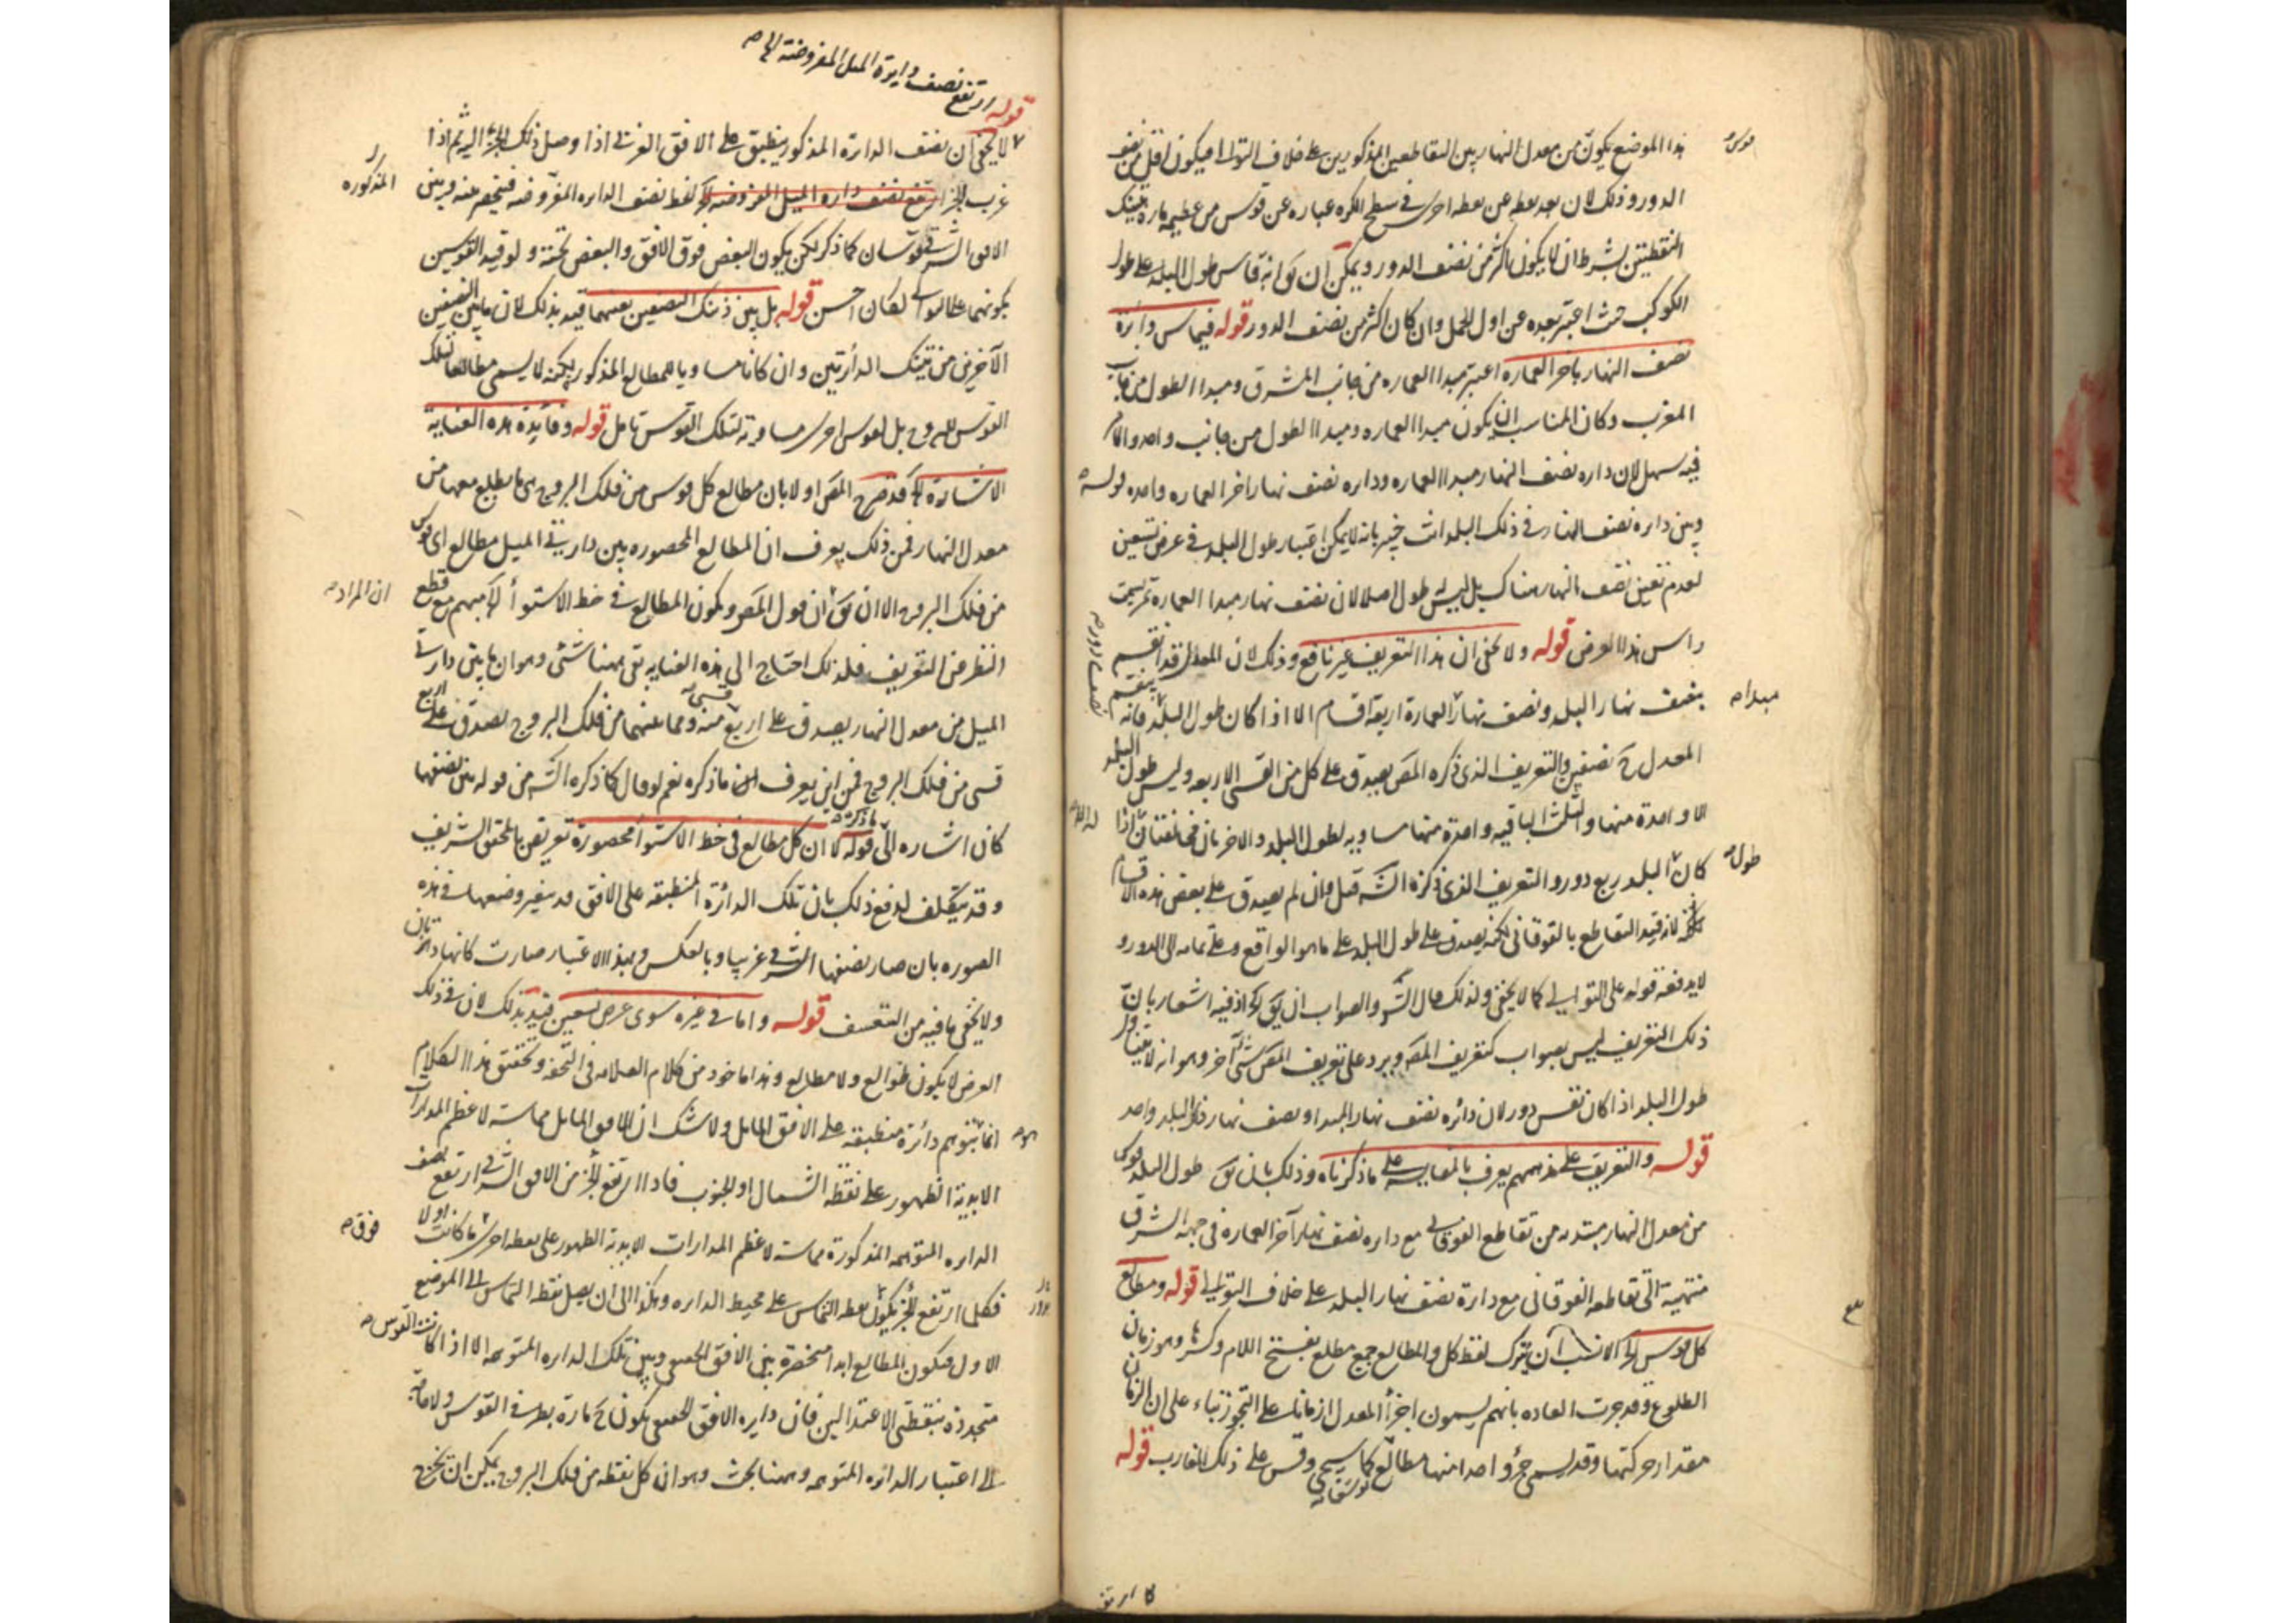 هذا الموضع يكون من معدل النهار بين التقاطعين المذكورين على خلاف التوالى فيكون اقل من نصف
الدور وذلك لان بعد نقطه عن نقطه اخرى فى سطح الكره عباره عن قوس من عظيمه ماره بتينك
النقطتين بشرط ان لا يكون اكثر من نصف الدور ويمكن ان يق انه قاس طول البلد على طول
الكوكب حيث اعتبر بعده عن اول الحمل وان كان اكثر من نصف الدور قوله فيما س دائرة
نصف النهار باخر العماره اعتبر مبدا العماره من جانب المشرق ومبدا الطول من جانب
المغرب وكان المناسب ان يكون مبدا العماره ومبدا الطول من جانب واحد والامر
فيه سهل لان داره نصف النهار مبدا العماره وداره نصف نهار اخر العماره واحده قوله
وبين دايره نصف النهار فى ذلك البلد انت خبير بانه لا يمكن اعتبار طول البلد فى عرض تسعين
لعدم تعين نصف النهار هناك بل ليس طول اصلا لان نصف نهار مبدا العماره تمر بسمت
راس هذا العرض قوله ولا يخفى ان هذا التعريف غير نافع وذلك لان المعدل قد انقسم
بنصف نهار البلد ونصف نهار العمارة اربعة اقسام الا اذا كان طول البلد فانه
المعدل ح نصفين والتعريف الذى ذكره المص يصدق على كل من القسى الاربعه وليس طول البلد
الا واحدة منها والثلث الباقيه واحدة منها مساويه لطول البلد والاخريان مخالفتان اذا
كان البلد ربع دور والتعريف الذى ذكره الش قيل وان لم يصدق على بعض هذه الاقسام
لانه قيد التقاطع بالفوقانى لكنه يصدق على طول البلد على ما هو الواقع وعلى تمامه الى الدور و
لا يدفعه قوله على التوالى كما لا يخفى ولذلك قال الش والصواب ان يق الخ اذ فيه اشعار بان
ذلك التعريف ليس بصواب كتعريف المص ويرد على تعريف المص شئ آخر وهو انه لا يتناول
طول البلد اذا كان نصف دور لان دائره نصف نهار المبدا ونصف نهار ذلك البلد واحد
قوله والتعريف على مذهبهم يعرف بالمقايسه على ما ذكرناه وذلك بان يق طول البلد قوس
من معدل النهار مبتدئه من تقاطع الفوقانى مع داره نصف نهار آخر العماره فى جهه الشرق
منتهية الى تقاطعه الفوقانى مع دارة نصف نهار البلد على خلاف التوالى قوله ومطالع
كل قوس الخ الانسب ان يترك لفظ كل والمطالع جمع مطلع بفتح اللام وكسرها وهو زمان
الطلوع وقد جرت العاده بانهم يسمون اجزأ المعدل ازمانا على التجوز بناء على ان الزمان
مقدار حركتها وقد يسمى جزؤ واحد منها مطالع كما يسمى قوس وقس على ذلك المغارب قوله
قوله ارتفع نصف دايرة الميل المفروضة الخ
لا يخفى ان نصف الدائرة المذكور ينطبق على الافق الغربى اذا وصل ذلك الجزء اليه ثم اذا
غرب الجزء ارتفع نصف داره الميل المفروضه الخ لفظ نصف الداره المفروضه فينحصر منه وبين
الافق الشرقى قوسان كما ذكر لكن يكون البعض فوق الافق والبعض تحته ولو قيد القوسين
بكونهما على التوالى لكان احسن قوله بل بين ذينك النصفين بعينهما قيد بذلك لان ما بين النصفين
الآخرين من تينك الدأرتين وان كانا مساويا للمطالع المذكور لكنه لا يسمى مطالعا لتلك
القوس للبروج بل لقوس اخرى مساوية لتلك القوس تامل قوله وفايدة هذه العناية
الاشارة الخ قد صرح المص اولا بان مطالع كل قوس من فلك البروج هى ما يطلع معها من
معدل النهار فمن ذلك يعرف ان المطالع المحصوره بين داريتى الميل مطالع اى قوس
من فلك البروج الا ان يق ان قول المص ويكون المطالع فى خط الاستوأ الخ مبهم مع قطع
النظر عن التعريف فلذلك احتاج الى هذه العنايه بقى ههنا شئ وهو ان ما بين دارتى
الميل من معدل النهار يصدق على اربع قسى منه وما بينهما من فلك البروج يصدق على اربع
قسى من فلك البروج فمن اين يعرف ان ما ذكره نعم لو قال كما ذكره الش من قوله بين نصفها
كان اشاره الى ما ذكرته قوله لان كل مطالع فى خط الاستوا محصورة تعريض بالمحقق الشريف
وقد يتكلف لدفع ذلك بان تلك الدائرة المنطبقه على الافق قد يتغير وضعها فى هذه
الصوره بان صار نصفها الشرقى غربيا وبالعكس وبهذا الاعتبار صارت كانها دائرتان
ولا يخفى ما فيه من التعسف قوله واما فى غيره سوى عرض تسعين قيد بذلك لان فى ذلك
العرض لا يكون طوالع ولا مطالع وهذا ماخوذ من كلام العلامه فى التحفه وتحقيق هذا الكلام
انما يتوهم دائرة منطبقه على الافق المايل ولا شك ان الافق المايل مماسته لاعظم المدارات
الابدية الظهور على نقطه الشمال او الجنوب فاذا ارتفع الجزء من الافق الشرقى ارتفع نصف
الداره المتوهمه المذكورة مماسة لاعظم المدارات الابدية الظهور على نقطه اخرى ما كانت اولا
فكلما ارتفع الجزء يكون نقطه التماس على محيط الداره وهكذا الى ان يصل نقطه التماس الى الموضع
الاول فيكون المطالع ابدا منحصرة بين الافق الحسى وبين تلك الداره المتوهمه الا اذا كانت القوس
متحددة بنقطتى الاعتدالين فان دايره الافق الحسى يكون ح مارة بطرفى القوس ولا حاجه
الى اعتبار الدائره المتوهمه وههنا بحث وهو ان كل نقطه من فلك البروج يمكن ان تخرج
قوس
مبدا
طول
المذكوره
ان المراد
هو
فوق